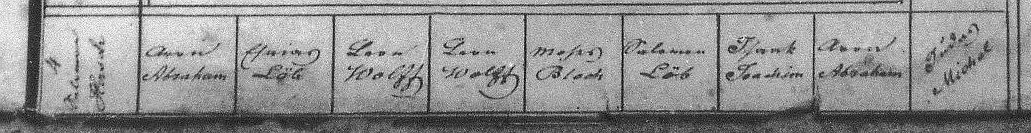 4
Salomon
Hirsch
Aron
Abraham
Esaias
Löb
Leon
Wolff
Leon
Wolff
Moses
Bloch
Salomon
Löb
Isaak
Joachim
Aron
Abraham
Judas
Michel